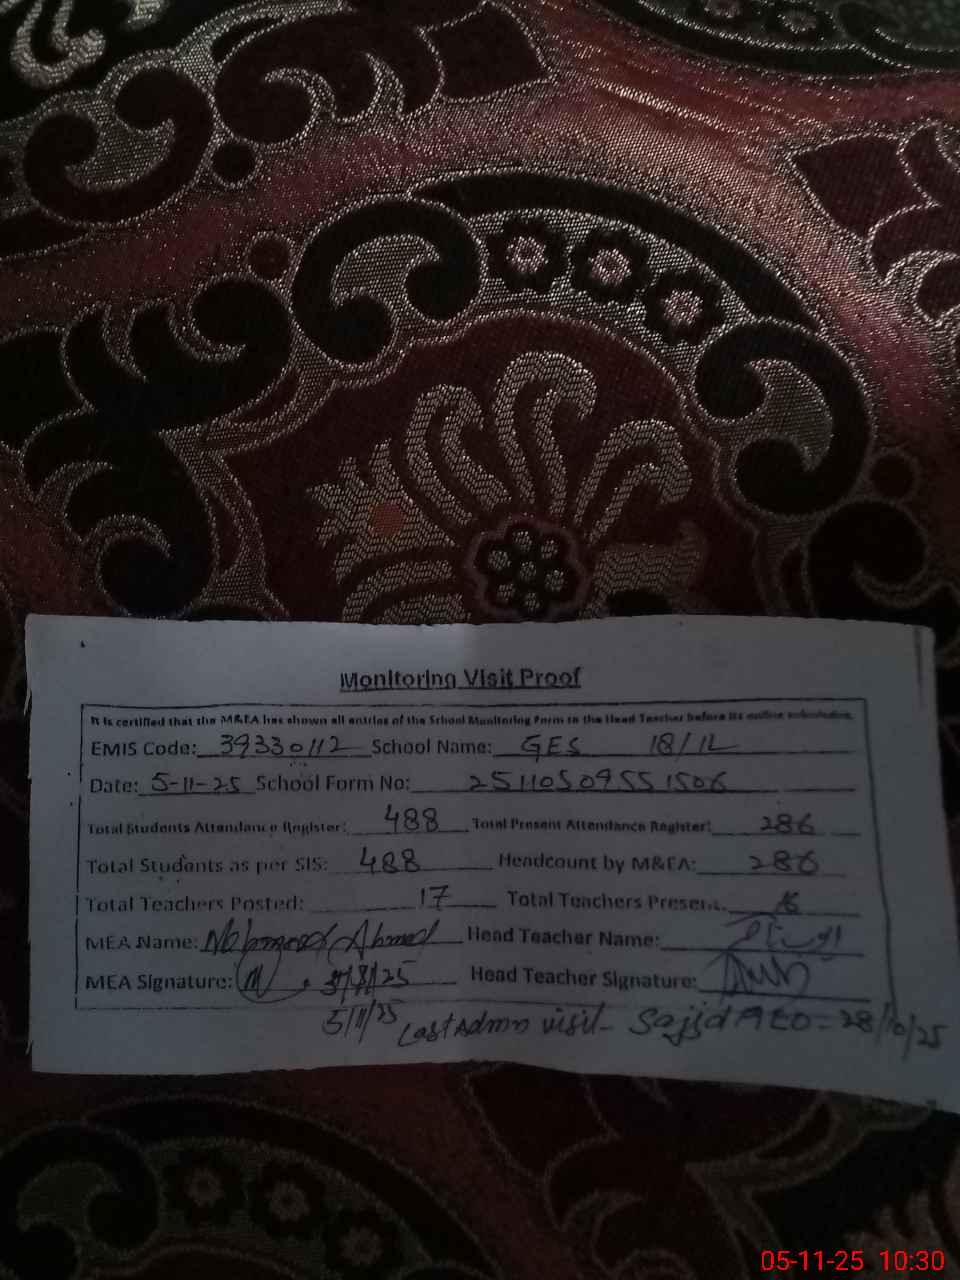 Monitoring Visit Proof
It is certified that the M&EA has shown all entries of the School Monitoring Form to the Head Teacher before its online submission.
EMIS Code: 39330112 School Name: GES 18/1L
Date: 5-11-25 School Form No: 25110509551506
Total Students Attendance Register: 488 Total Present Attendance Register: 286
Total Students as per SIS: 488 Headcount by M&EA: 286
Total Teachers Posted: 17 Total Teachers Present: 16
MEA Name: Ahmed Head Teacher Name:
MEA Signature: Head Teacher Signature:
5/11/25 Last Admn visit - Sajjd AEO - 28/10/25
05-11-25 10:30